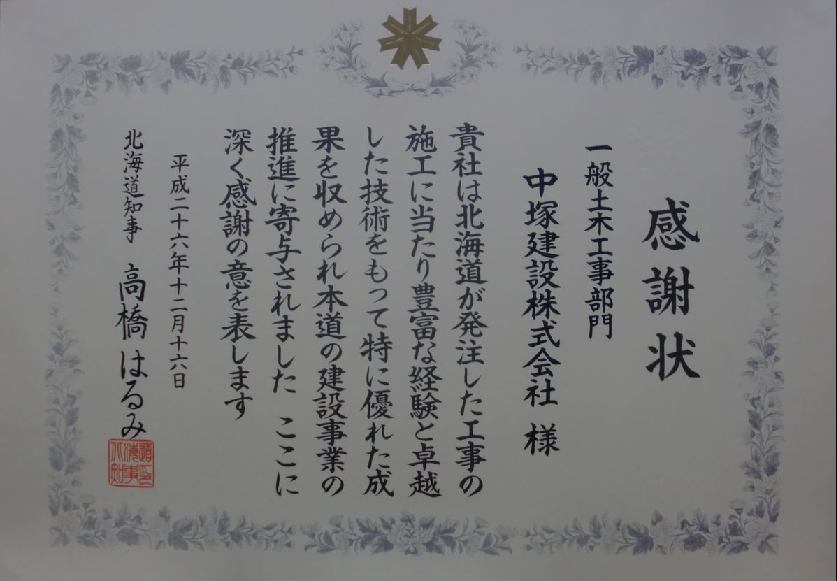 感謝状
一般土木工事部門
中塚建設株式会社 様
貴社は北海道が発注した工事の
施工に当たり豊富な経験と卓越
した技術をもって特に優れた成
果を収められ本道の建設事業の
推進に寄与されました ここに
深く感謝の意を表します
平成二十六年十二月十六日
北海道知事 高橋はるみ